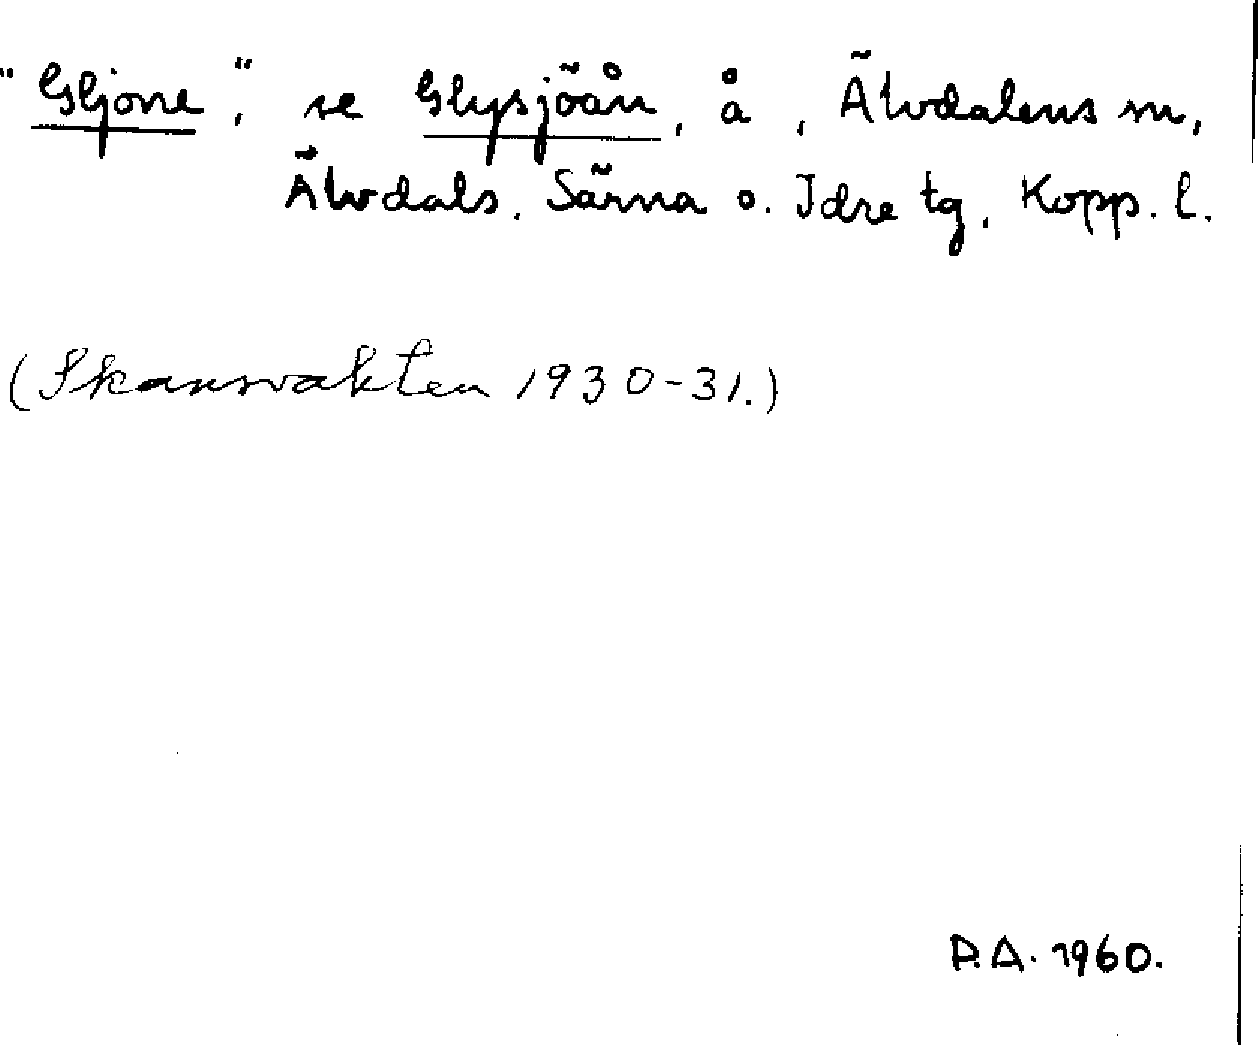 "Gljone", se Glysjöån, å, Älvdalens sn,
Älvdals, Särna o. Idre tg, Kopp. l.
(Skansvakten 1930-31.)
P.A. 1960.